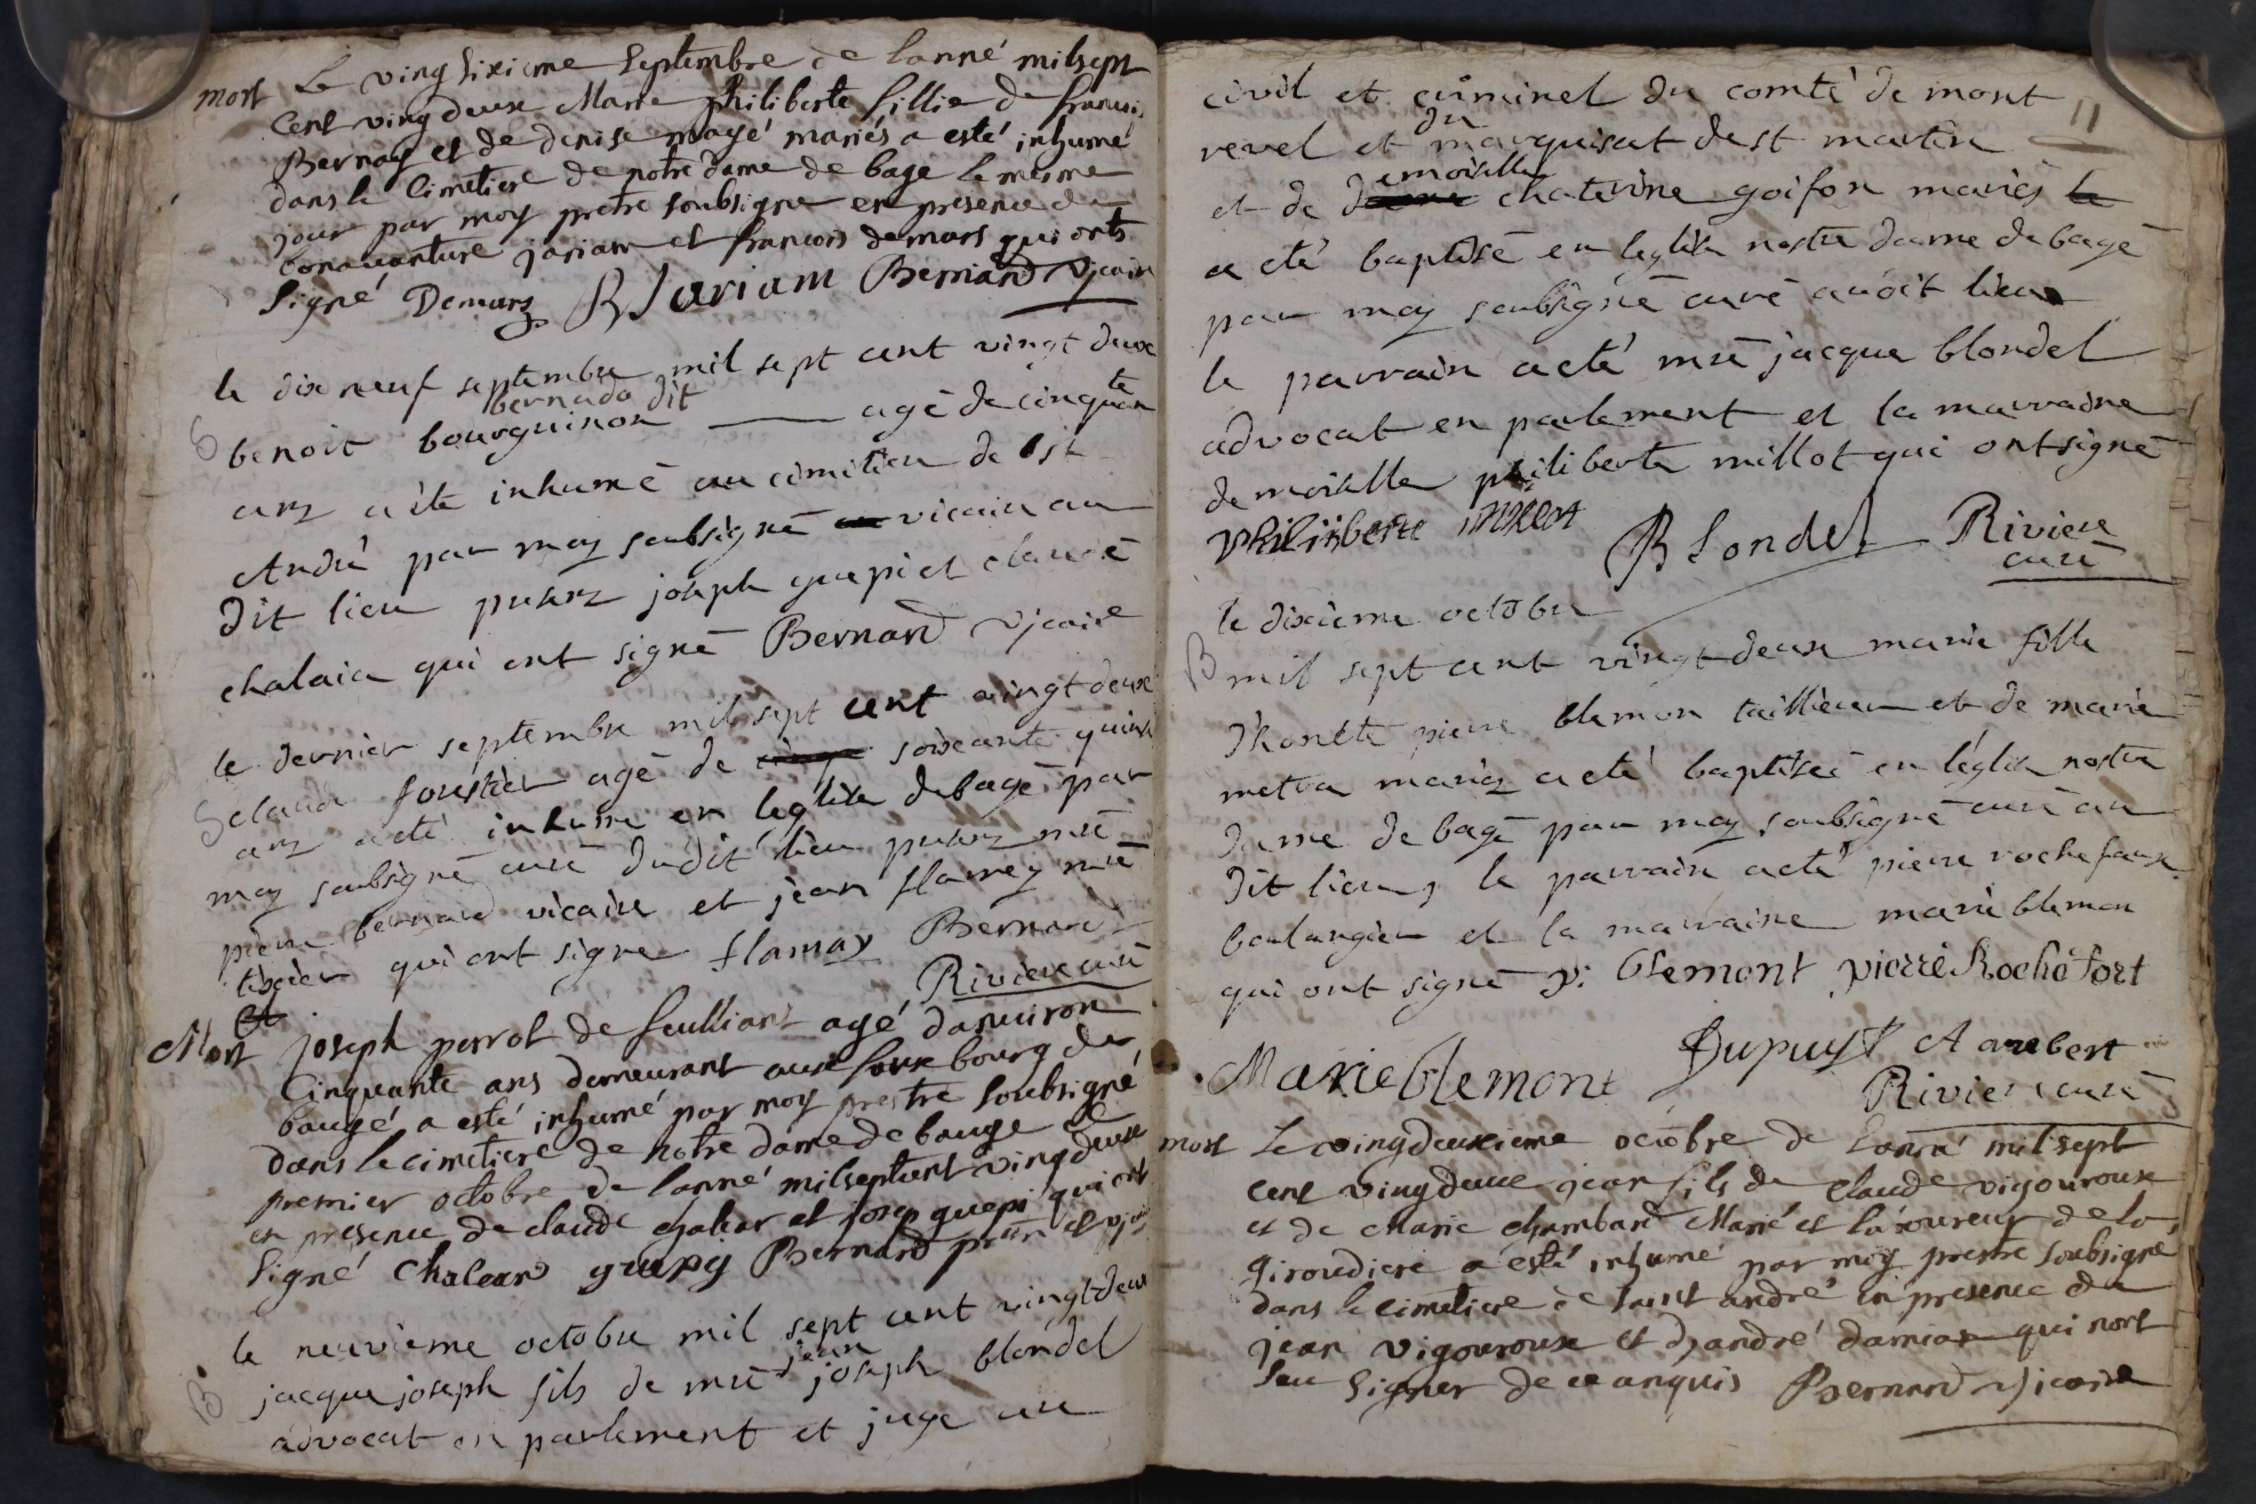 mort Le ving sixieme septembre de lanné milsept
Cent ving deux Marie philiberte fillie de francois
Bernay et de denise mayé mariés a esté inhumé
dans le Cimetiere de notre dame de bage le mesme
jour par moy pretre soubsigne en presence de
bonaventure jariam et francois demars qui onts
signé Demars BJariam Bernard vjcaire
le dix neuf septembre mil sept cent vingt deux
bernado dit
S benoit bourguinon agé de cinquante
ans a été inhumé au cimitiere de st
André par moy soubsigné vicaire au
dit lieu presens joseph guepi et claude
chalaia qui ont signé Bernard vjcaire
le dernier septembre mil sept cent vingt deux
S claude forestier agé de soixante quinze
ans a eté inhumé en leglise de bagé par
moy soubsigné curé dudit lieu presens mre
pierre bernard vicaire et jean flamey mre
tixier qui ont signe flamay Bernard
Riviere curé
Mort joseph perrot de feullians agé danviron
Cinquante ans demeurant aux faux bourg de
baugé a esté inhumé par moy prestre soubsigné
dans le cimetiere de notre dame de bauge le
premier octobre de lanné milseptcent ving deux
en presence de claude chalear et josep guepi qui ont
signé Chalear guepy Bernard pretre et vjcaire
le neuvieme octobre mil sept cent vingt deux
jean
B jacque joseph fils de mre joseph blondel
advocat en parlement et juge au
11
civil et criminel du comté de mont
du
revel et marquisat de st martin
emoiselle
et de d chaterine goifon mariés
a eté baptisé en leglise nostre dame de bagé
par moy soubsigné curé audit lieu
le parrain a eté mre jacque blondel
advocat en parlement et la marraine
demoiselle philiberte millot qui ont signé
philiberte millot Blondel Riviere
curé
le dixieme octobre
B mil sept cent vingt deux marie fille
d'honête pierre blemon taillieur et de marie
mettra mariez a eté baptiseé en léglise nostre
dame de bagé par moy soubsigné curé au
dit lieu, le parrain a eté pierre rochefaux
boulangier et la marraine marie blemon
qui ont signé p: blemont pierre Rochefort
Marie blemont Dupuyt Aarebert
Riviere curé
mort Le vingdeuxieme octobre de lanné milsept
cent vingdeux jean fils de claude vigouroux
et de Marie chambard Marié et laboureur de la
giroudiere a esté inhumé par moy prestre soubsigné
dans le cimetiere de saint andré en presence de
jean vigouroux et dandré damian qui nont
seu signer de ce anquis Bernard vjcaire